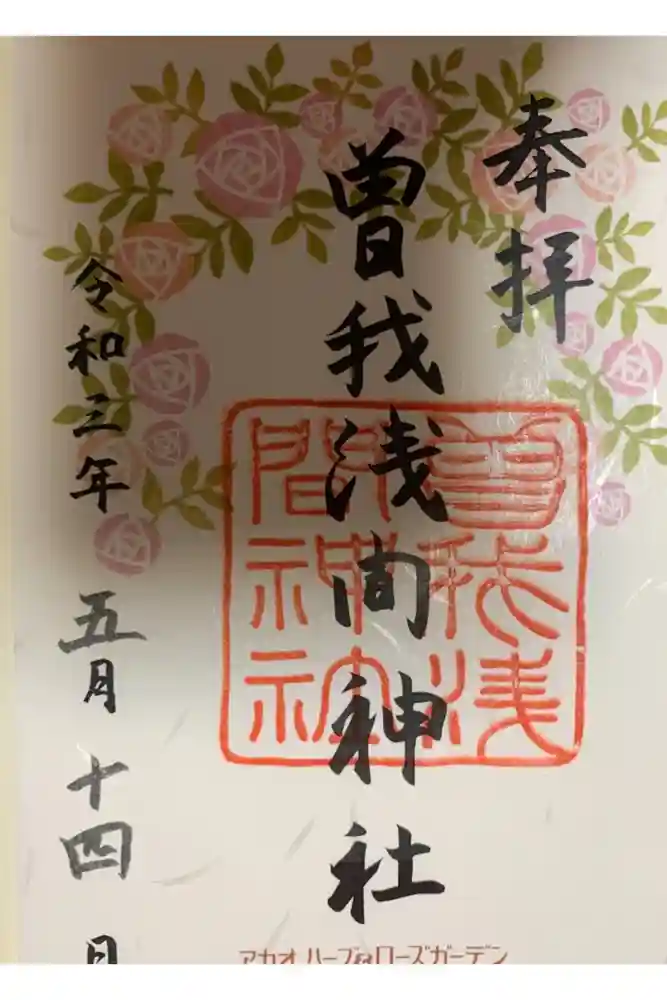 奉拝
曽我浅間神社
曽我浅
間神社
令和三年 五月 十四日
アカオ ハーブ&ローズガーデン